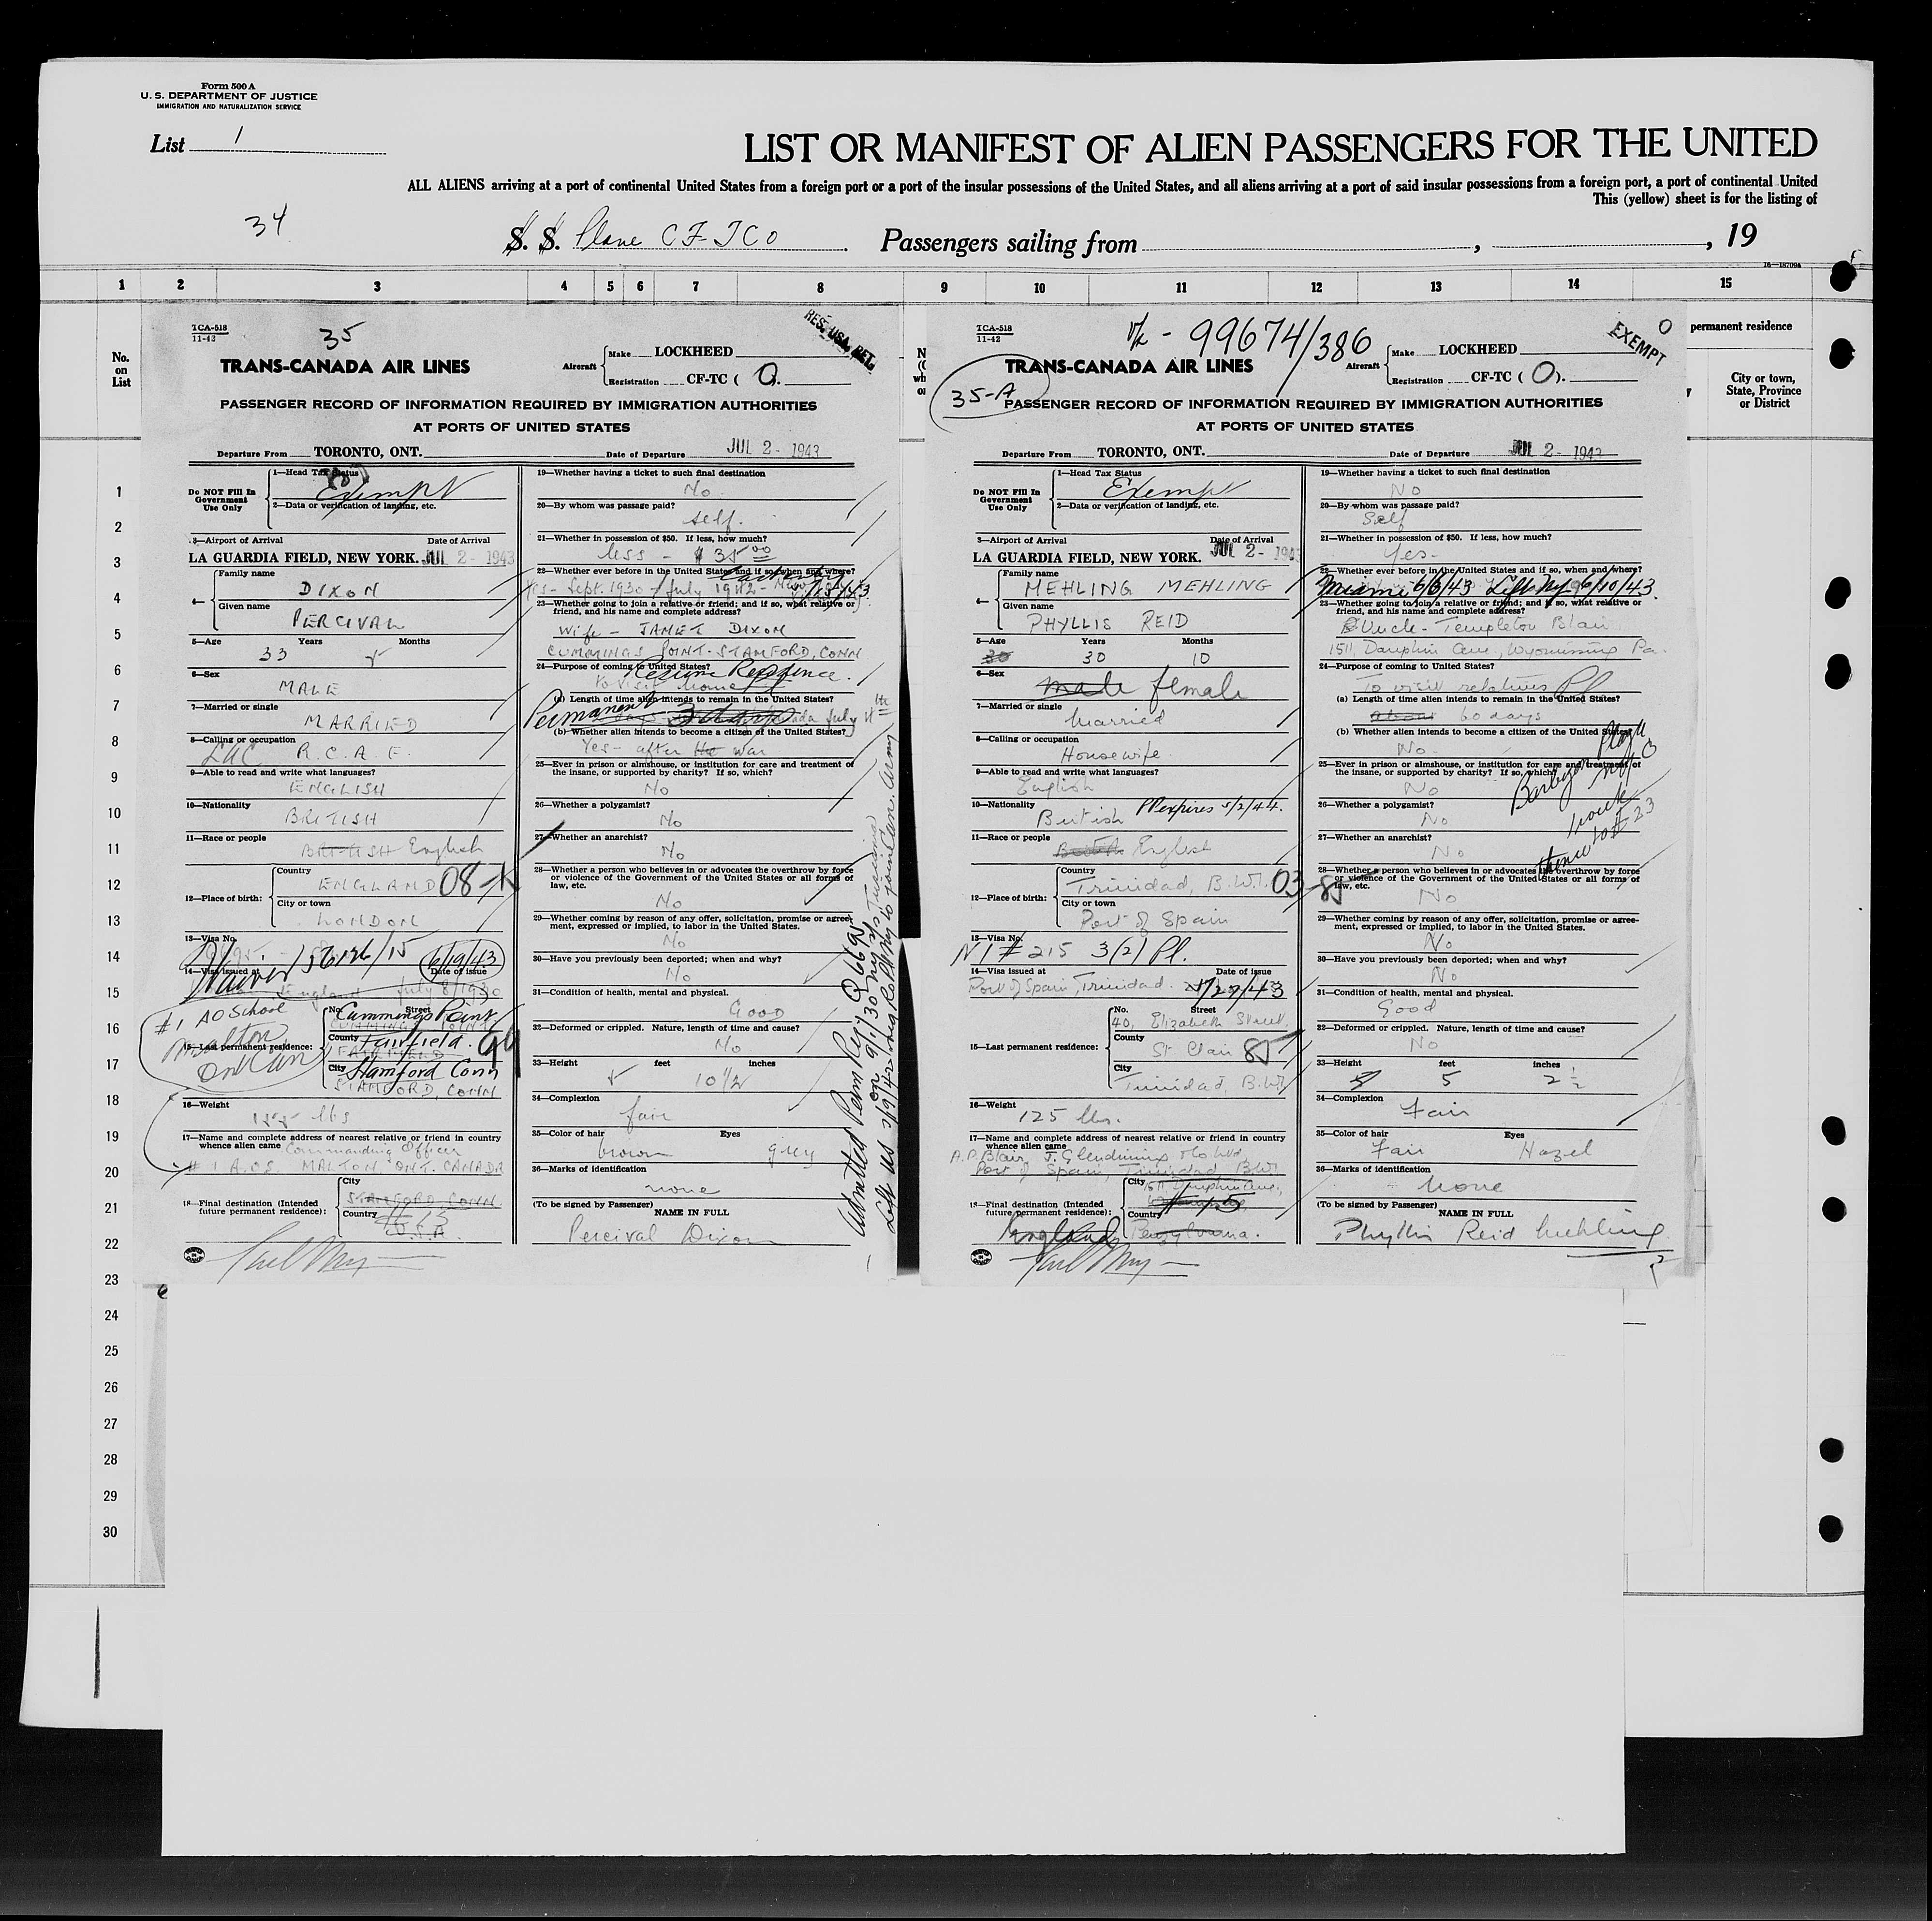 Form 500 A
U. S. DEPARTMENT OF JUSTICE
IMMIGRATION AND NATURALIZATION SERVICE
List 1
LIST OR MANIFEST OF ALIEN PASSENGERS FOR THE UNITED
ALL ALIENS arriving at a port of continental United States from a foreign port or a port of the insular possessions of the United States, and all aliens arriving at a port of said insular possessions from a foreign port, a port of continental United
This (yellow) sheet is for the listing of
34
S. S. Plane CF-TCO Passengers sailing from , , 19
16—18709a
1 2 3 4 5 6 7 8 9 10 11 12 13 14 15
No. on List
permanent residence
City or town, State, Province or District
1
2
3
4
5
6
7
8
9
10
11
12
13
14
15
16
17
18
19
20
21
22
23
24
25
26
27
28
29
30
TCA-518
11-42
35
RES. USA. RET.
TRANS-CANADA AIR LINES
Aircraft Make LOCKHEED
Registration CF-TC ( O ).
PASSENGER RECORD OF INFORMATION REQUIRED BY IMMIGRATION AUTHORITIES
AT PORTS OF UNITED STATES
Departure From TORONTO, ONT. Date of Departure JUL 2 - 1943
Do NOT Fill In Government Use Only
1—Head Tax Status
Exempt
2—Data or verification of landing, etc.
3—Airport of Arrival Date of Arrival
LA GUARDIA FIELD, NEW YORK. JUL 2 - 1943
4— Family name
DIXON
Given name
PERCIVAL
5—Age Years Months
33
6—Sex
MALE
7—Married or single
MARRIED
8—Calling or occupation
LAC R.C.A.F.
9—Able to read and write what languages?
ENGLISH
10—Nationality
BRITISH
11—Race or people
BRITISH English
12—Place of birth: Country
ENGLAND 08-K
City or town
LONDON
13—Visa No.
Waiver 56126/15 6/19/43
14—Visa issued at Date of issue
England July 8/1930
#1 AO School
Malton
Ont Can
15—Last permanent residence:
No. Street
Cummings Point
County
Fairfield
FAIRFIELD
City
Stamford Conn
STAMFORD, CONN
16—Weight
155 lbs
17—Name and complete address of nearest relative or friend in country whence alien came
Commanding Officer
# 1 A.O.S. MALTON ONT. CANADA
18—Final destination (Intended future permanent residence):
City
STAMFORD CONN
Country
U.S.A.
19—Whether having a ticket to such final destination
No
20—By whom was passage paid?
self.
21—Whether in possession of $50. If less, how much?
less - $35.00
22—Whether ever before in the United States and if so, when and where?
Yes - Sept. 1930 - July 1942 -
23—Whether going to join a relative or friend; and if so, what relative or friend, and his name and complete address?
Wife - JANET DIXON
CUMMINGS POINT - STAMFORD, CONN
24—Purpose of coming to United States?
Resume Residence.
to visit home
(a) Length of time alien intends to remain in the United States?
Permanent
(b) Whether alien intends to become a citizen of the United States?
Yes - after the war
25—Ever in prison or almshouse, or institution for care and treatment of the insane, or supported by charity? If so, which?
No
26—Whether a polygamist?
No
27—Whether an anarchist?
No
28—Whether a person who believes in or advocates the overthrow by force or violence of the Government of the United States or all forms of law, etc.
No
29—Whether coming by reason of any offer, solicitation, promise or agreement, expressed or implied, to labor in the United States.
No
30—Have you previously been deported; when and why?
No
31—Condition of health, mental and physical.
Good
32—Deformed or crippled. Nature, length of time and cause?
No
33—Height feet inches
5 10½
34—Complexion
fair
35—Color of hair Eyes
brown grey
36—Marks of identification
none
(To be signed by Passenger) NAME IN FULL
Percival Dixon
Admitted Perm Res
on 9/1/30 NY
to join Can. Army
TCA-518
11-42
99674/386
EXEMPT
0
35-A
TRANS-CANADA AIR LINES
Aircraft Make LOCKHEED
Registration CF-TC ( O ).
PASSENGER RECORD OF INFORMATION REQUIRED BY IMMIGRATION AUTHORITIES
AT PORTS OF UNITED STATES
Departure From TORONTO, ONT. Date of Departure JUL 2 - 1943
Do NOT Fill In Government Use Only
1—Head Tax Status
Exempt
2—Data or verification of landing, etc.
3—Airport of Arrival Date of Arrival
LA GUARDIA FIELD, NEW YORK. JUL 2 - 1943
4— Family name
MEHLING MEHLING
Given name
PHYLLIS REID
5—Age Years Months
30 30 10
6—Sex
male female
7—Married or single
Married
8—Calling or occupation
Housewife
9—Able to read and write what languages?
English
10—Nationality
British PP expires 5/2/44.
11—Race or people
British English
12—Place of birth: Country
Trinidad, B.W.I. 03-85
City or town
Port of Spain
13—Visa No.
NI # 215 3(2) Pl.
14—Visa issued at Date of issue
Port of Spain, Trinidad.
15—Last permanent residence:
No. Street
40, Elizabeth Street,
County
St. Clair 85
City
Trinidad, B.W.I
16—Weight
125 lbs.
17—Name and complete address of nearest relative or friend in country whence alien came
A.P. Blair, J. Glendinning
Port of Spain, Trinidad, B.W.I.
18—Final destination (Intended future permanent residence):
City
1511 Dauphin Ave.,
Country
England
Pennsylvania.
19—Whether having a ticket to such final destination
No
20—By whom was passage paid?
Self
21—Whether in possession of $50. If less, how much?
Yes-
22—Whether ever before in the United States and if so, when and where?
Miami 6/6/43 Left NY 6/10/43.
23—Whether going to join a relative or friend; and if so, what relative or friend, and his name and complete address?
Uncle - Templeton Blair
1511, Dauphin Ave., Wyomissing Pa.
24—Purpose of coming to United States?
To visit relatives Pl
(a) Length of time alien intends to remain in the United States?
60 days
(b) Whether alien intends to become a citizen of the United States?
No.
25—Ever in prison or almshouse, or institution for care and treatment of the insane, or supported by charity? If so, which?
No
26—Whether a polygamist?
No
27—Whether an anarchist?
No
28—Whether a person who believes in or advocates the overthrow by force or violence of the Government of the United States or all forms of law, etc.
No
29—Whether coming by reason of any offer, solicitation, promise or agreement, expressed or implied, to labor in the United States.
No
30—Have you previously been deported; when and why?
No
31—Condition of health, mental and physical.
Good
32—Deformed or crippled. Nature, length of time and cause?
No
33—Height feet inches
5 2½
34—Complexion
Fair
35—Color of hair Eyes
Fair Hazel
36—Marks of identification
None
(To be signed by Passenger) NAME IN FULL
Phyllis Reid Mehling
Barbizon Plaza
NYC
thence to # 23